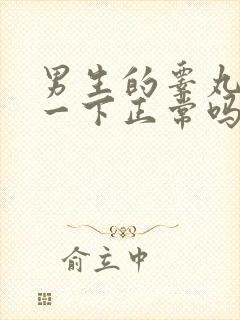 男生的睾丸
一下正常吗
俞立中